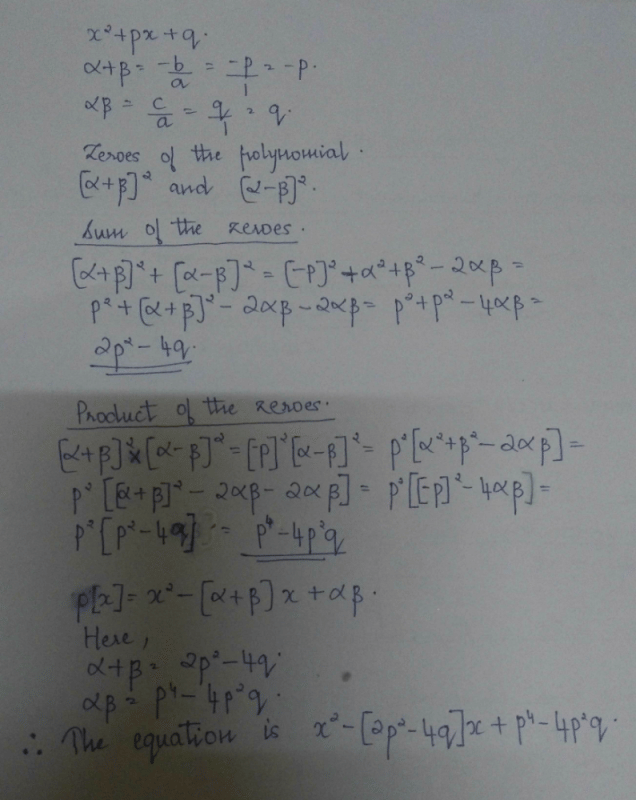 x²+px+q.
α+β = -b/a = -p/1 = -p.
αβ = c/a = q/1 = q.
Zeroes of the polynomial.
[α+β]² and [α-β]².
Sum of the zeroes.
[α+β]²+[α-β]² = [-p]²+α²+β²-2αβ =
p²+[α+β]²-2αβ-2αβ = p²+p²-4αβ =
2p²-4q.
Product of the zeroes.
[α+β]²×[α-β]² = [-p]²[α-β]² = p²[α²+β²-2αβ] =
p²[[α+β]²-2αβ-2αβ] = p²[[-p]²-4αβ] =
p²[p²-4q] = p⁴-4p²q
p[x] = x²-[α+β]x+αβ.
Here,
α+β = 2p²-4q.
αβ = p⁴-4p²q.
∴ The equation is x²-[2p²-4q]x+p⁴-4p²q.